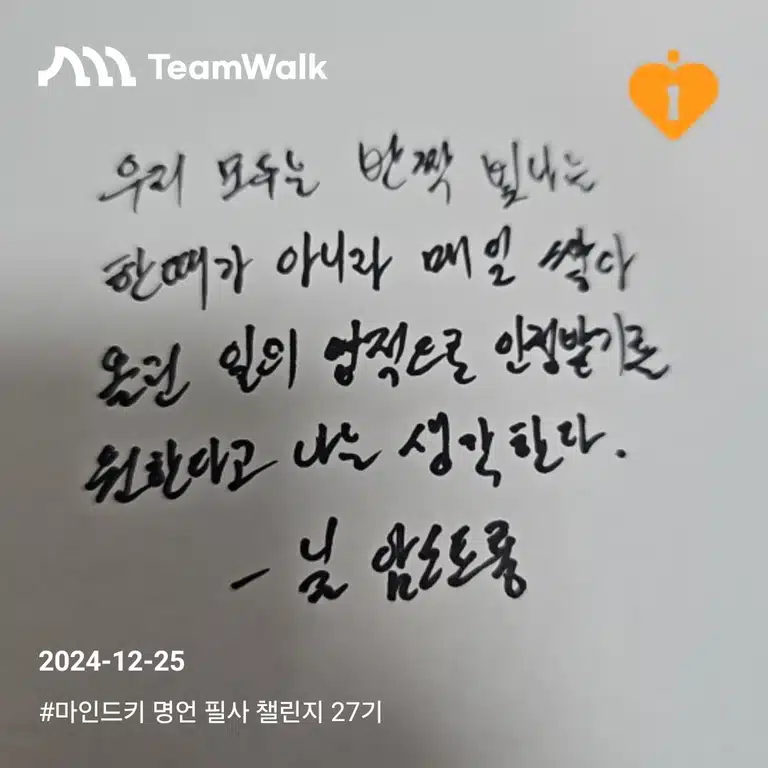 TeamWalk
1
우리 모두는 반짝 빛나는
한때가 아니라 매일 쌓다
올린 일의 업적으로 인정받기를
원한다고 나는 생각한다.
- 닐 암스트롱
2024-12-25
#마인드키 명언 필사 챌린지 27기